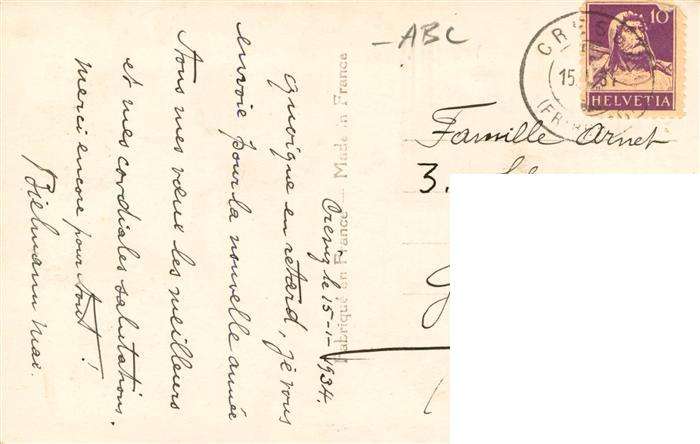 Cresuz le 15-1-1934.
quoique en retard, je vous
envoie pour la nouvelle année
Tous mes vœux les meilleurs
et mes cordiales salutations.
merci encore pour tout !
Bielmann Max.
Fabriqué en France — Made in France
-ABC
10
HELVETIA
15.
Famille Arnet
3.